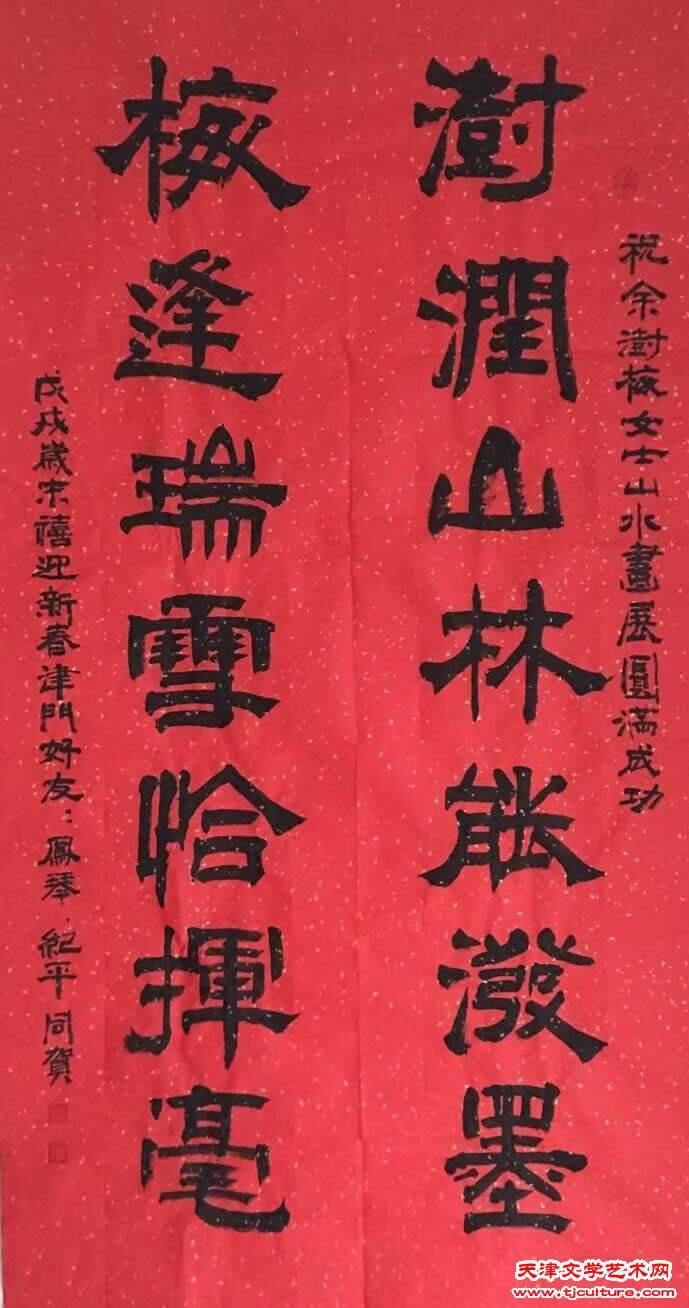 祝余澍梅女士山水畫展圓滿成功
澍潤山林能潑墨
梅逢瑞雪恰揮毫
戊戌歲末禧迎新春津門好友：鳳琴、紀平同賀
天津文学艺术网
www.tjculture.com